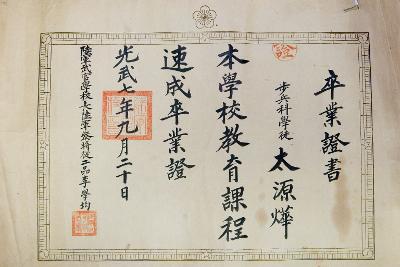 卒業證書
步兵科學徒 太源燁
本學校教育課程
速成卒業證
光武七年九月二十日
陸軍武官學校長陸軍參將從二品李學均
證